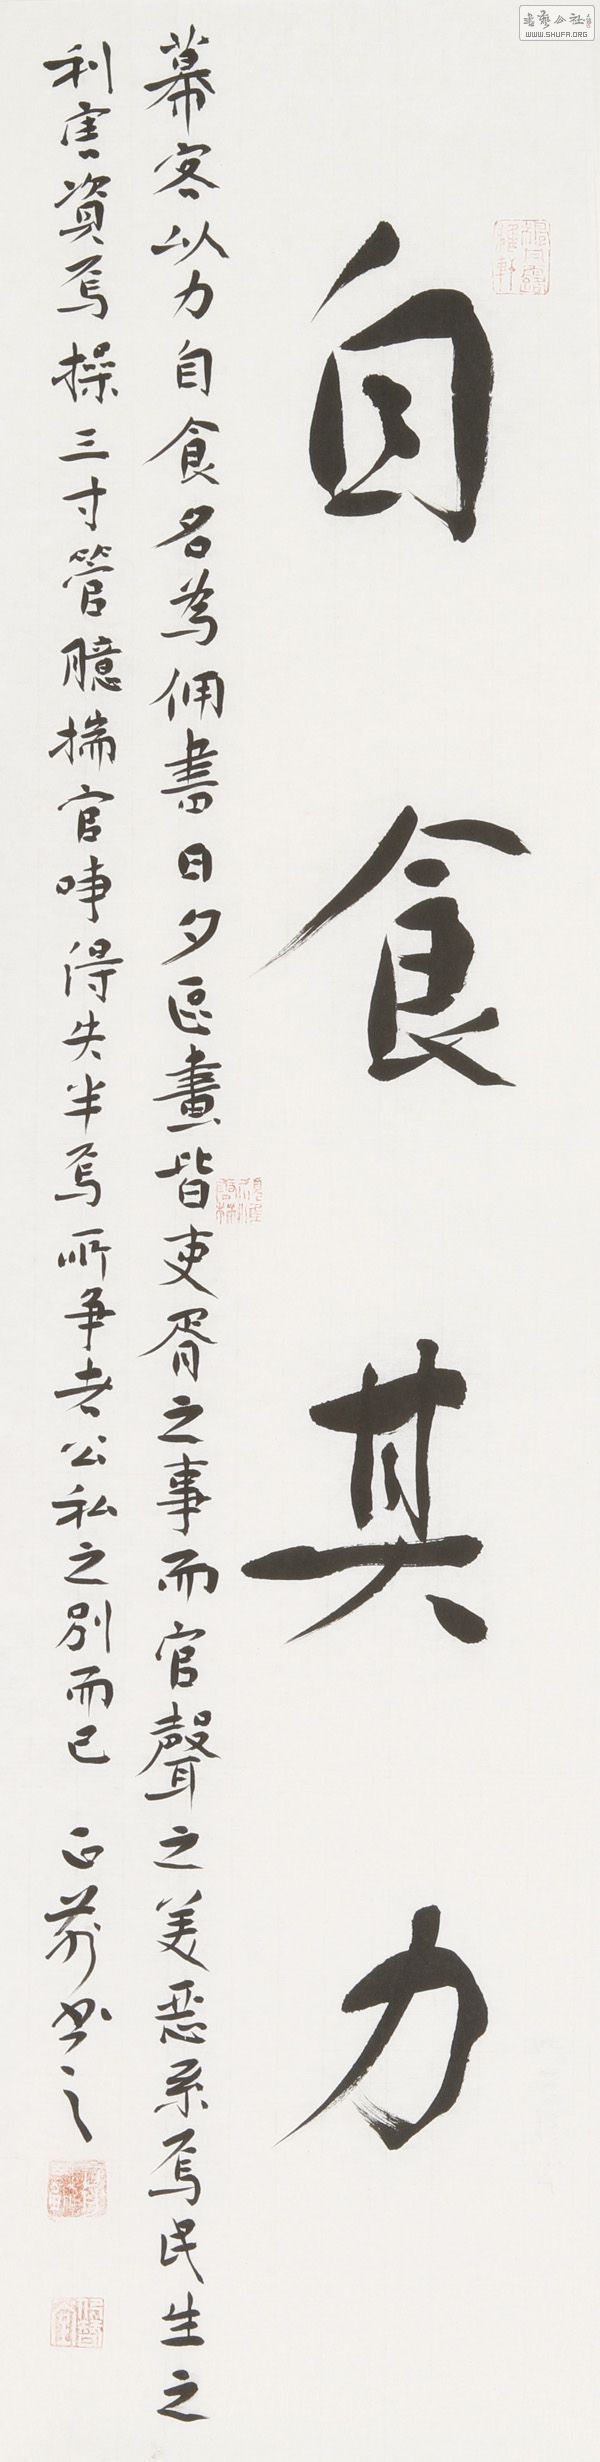 自食其力
幕客以力自食名為佣書日夕区畫皆吏胥之事而官聲之美惡系焉民生之
利害資焉操三寸管臆揣官事得失半焉所爭者公私之別而已 正前书之
書藝公社
www.SHUFA.ORG